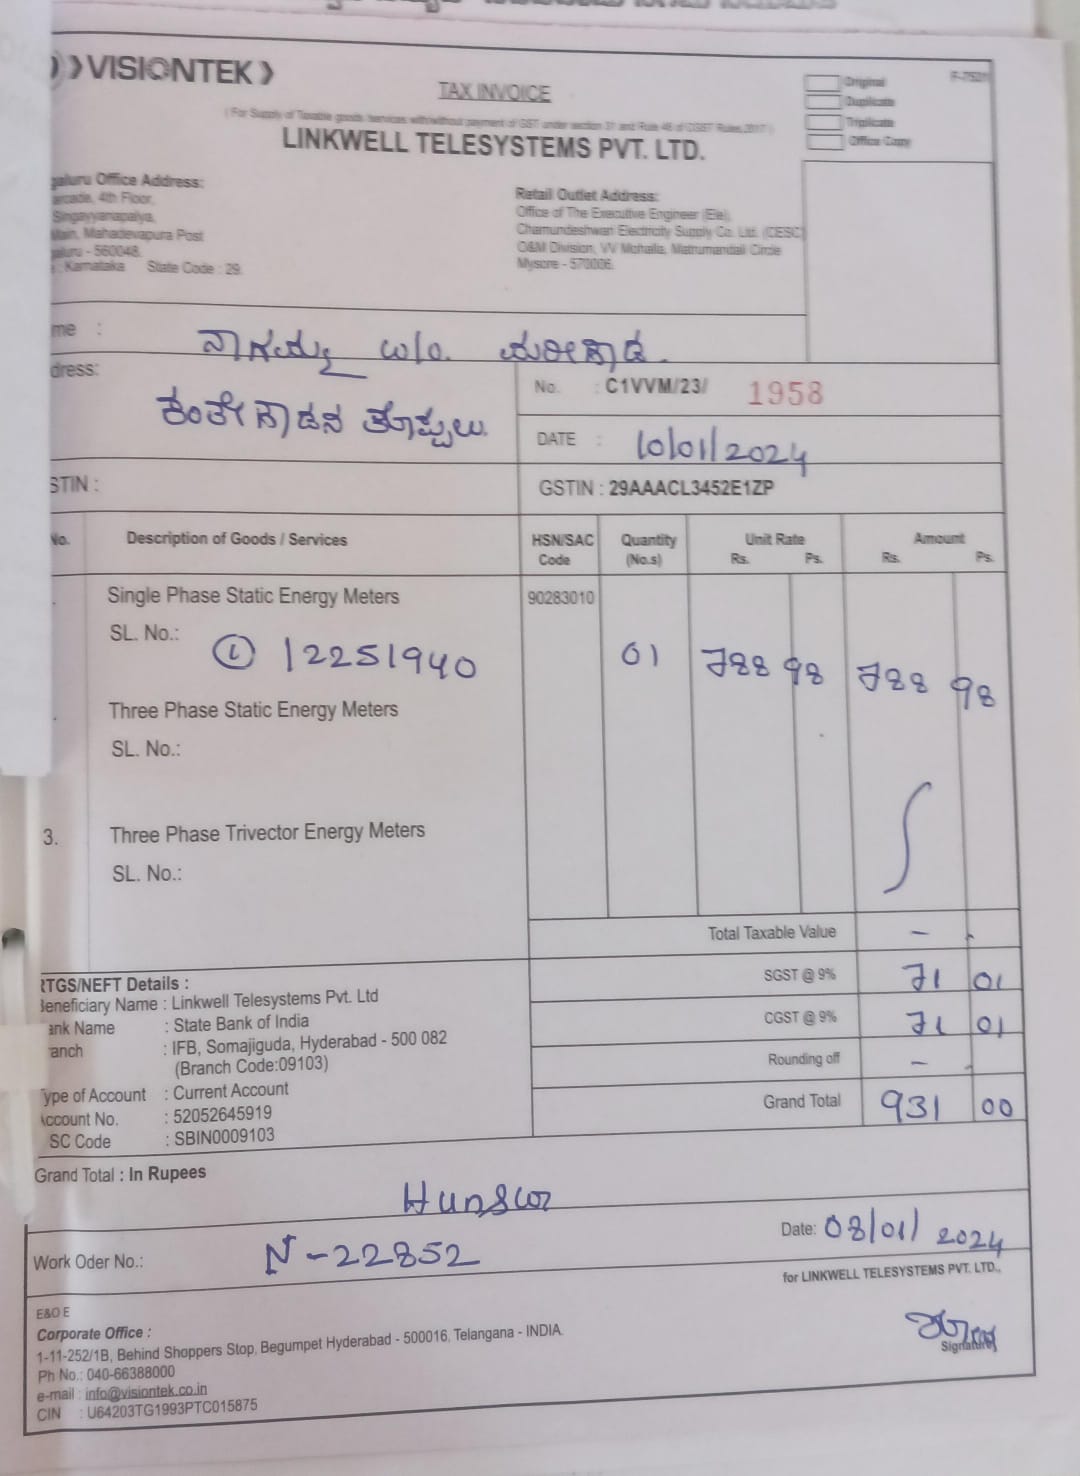 VISIONTEK
TAX INVOICE
(For Supply of Taxable goods /services with/without payment of GST under section 31 and Rule 46 of CGST Rules, 2017)
LINKWELL TELESYSTEMS PVT. LTD.
Original
Duplicate
Triplicate
Office Copy
F-7521
galuru Office Address:
arcade, 4th Floor,
Singayyanapalya,
Main, Mahadevapura Post
galuru - 560048.
: Karnataka State Code : 29
Retail Outlet Address:
Office of The Executive Engineer (Ele),
Chamundeshwari Electricity Supply Co. Ltd. (CESC)
O&M Division, VV Mohalla, Matrumandali Circle
Mysore - 570006.
me : ನಾಗಮ್ಮ w/o. ಮರೀಗೌಡ.
dress: ಕಂತೇಗೌಡನ ಕೊಪ್ಪಲು.
No. : C1VVM/23/ 1958
DATE : 10/01/2024
STIN :
GSTIN : 29AAACL3452E1ZP
No. Description of Goods / Services HSN/SAC Code Quantity (No.s) Unit Rate Rs. Ps. Amount Rs. Ps.
Single Phase Static Energy Meters 90283010
SL. No.: ① 12251940 01 788 98 788 98
Three Phase Static Energy Meters
SL. No.:
3. Three Phase Trivector Energy Meters
SL. No.:
Total Taxable Value -
SGST @ 9% 71 01
CGST @ 9% 71 01
Rounding off -
Grand Total 931 00
RTGS/NEFT Details :
Beneficiary Name : Linkwell Telesystems Pvt. Ltd
ank Name : State Bank of India
ranch : IFB, Somajiguda, Hyderabad - 500 082
(Branch Code:09103)
Type of Account : Current Account
Account No. : 52052645919
SC Code : SBIN0009103
Grand Total : In Rupees
Hunsur
Work Oder No.: N-22852
Date: 08/01/2024
for LINKWELL TELESYSTEMS PVT. LTD.,
Signature
E&O E
Corporate Office :
1-11-252/1B, Behind Shoppers Stop, Begumpet Hyderabad - 500016, Telangana - INDIA.
Ph No.: 040-66388000
e-mail : info@visiontek.co.in
CIN : U64203TG1993PTC015875